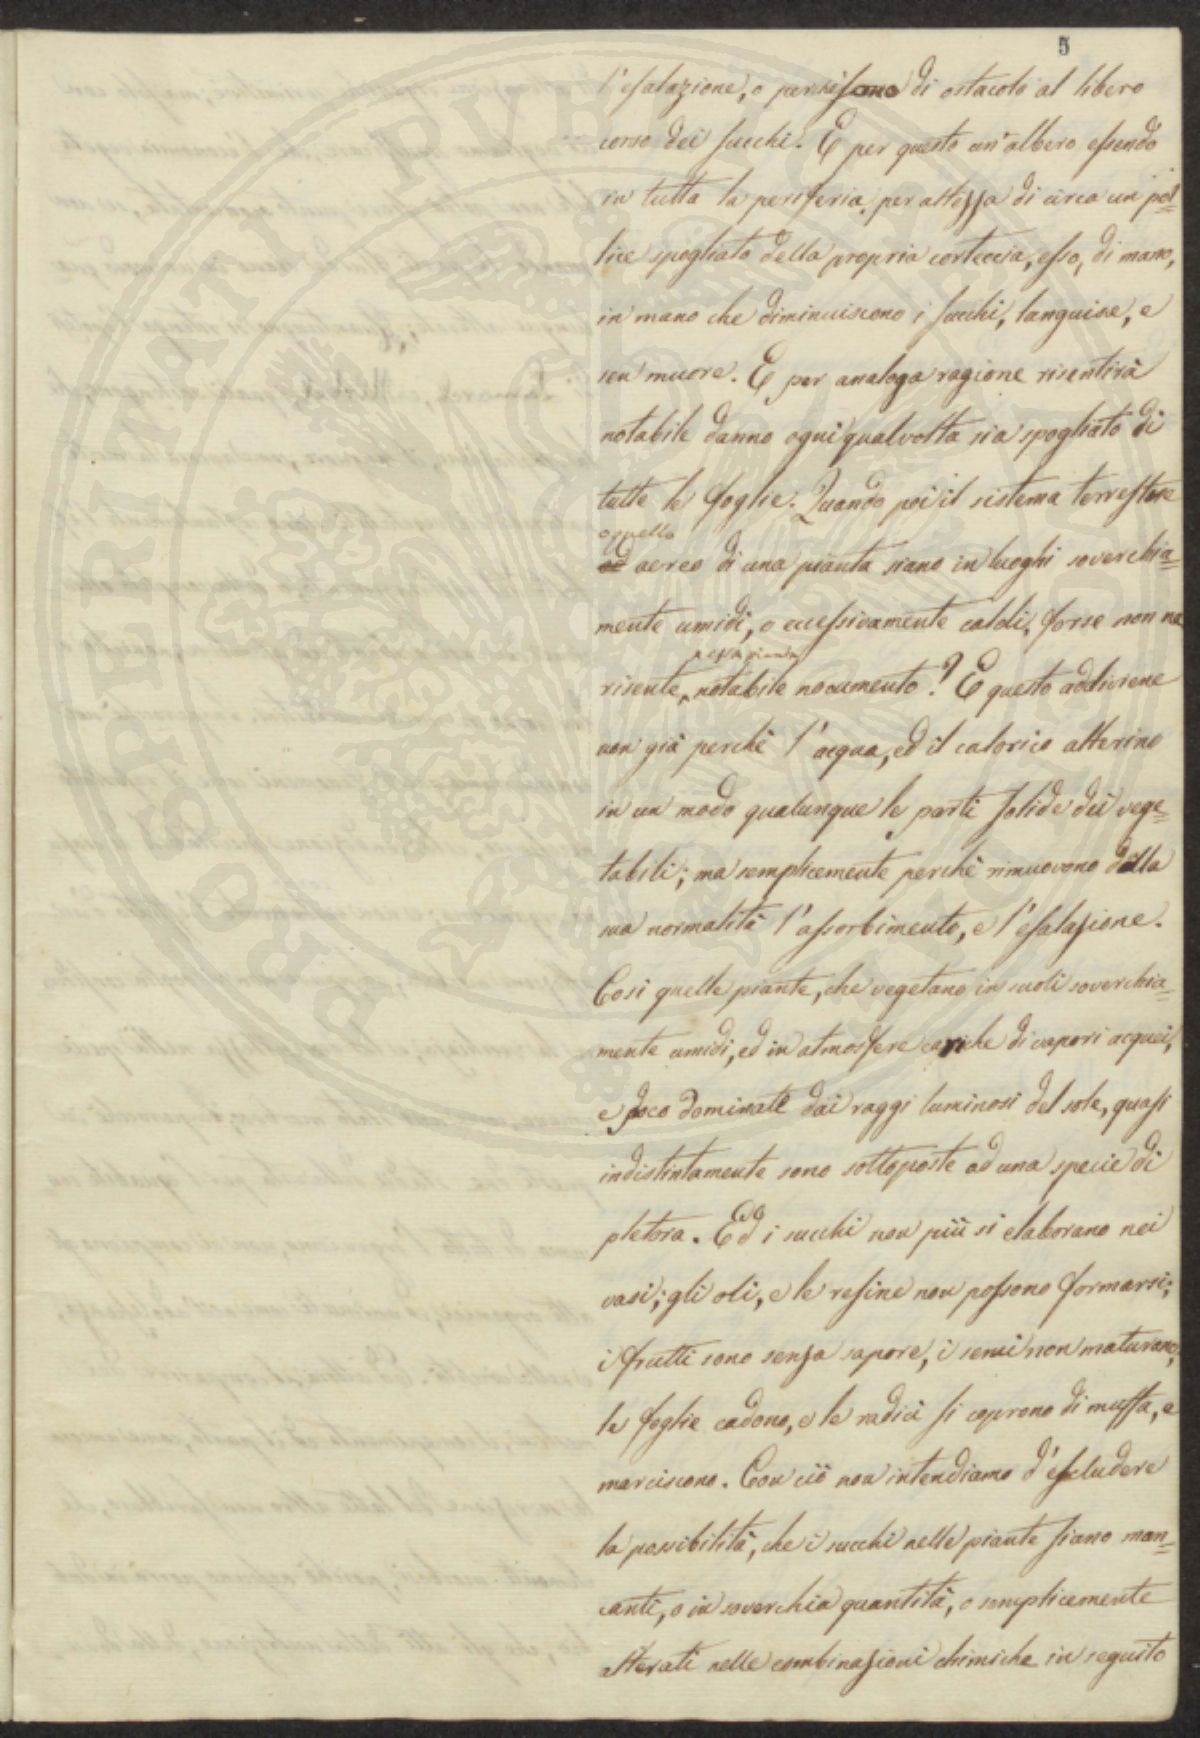 5
l'esalazione, o perchè sono di ostacolo al libero
corso dei succhi. E per questo un'albero essendo
in tutta la periferia, per altezza di circa un pol=
lice spogliato della propria corteccia, esso, di mano,
in mano che diminuiscono i succhi, languisce, e
sen muore. E per analoga ragione risentirà
notabile danno ogni qualvolta sia spogliato di
tutte le foglie. Quando poi il sistema terrestre
oppello
od aereo di una pianta siano in luoghi soverchia=
mente umidi, o eccessivamente caldi, forse non ne
risente, notabile nocumento? E questo addiviene
non già perchè l'acqua, ed il calorico alterino
in un modo qualunque le parti solide dei vege=
tabili; ma semplicemente perchè rimuovono dalla
sua normalità l'assorbimento, e l'esalazione.
Così quelle piante, che vegetano in suoli soverchia=
mente umidi, ed in atmosfere cariche di vapori acquei,
e poco dominate dai raggi luminosi del sole, quasi
indistintamente sono sottoposte ad una specie di
pletora. Ed i succhi non più si elaborano nei
vasi; gli oli, e le resine non possono formarsi;
i frutti sono senza sapore, i semi non maturano,
le foglie cadono, e le radici si coprono di muffa, e
marciscono. Con ciò non intendiamo d'escludere
la possibilità, che i succhi nelle piante siano man=
canti, o in soverchia quantità, o semplicemente
alterati nelle combinazioni chimiche in seguito
PROSPERITATI PUBLICAE